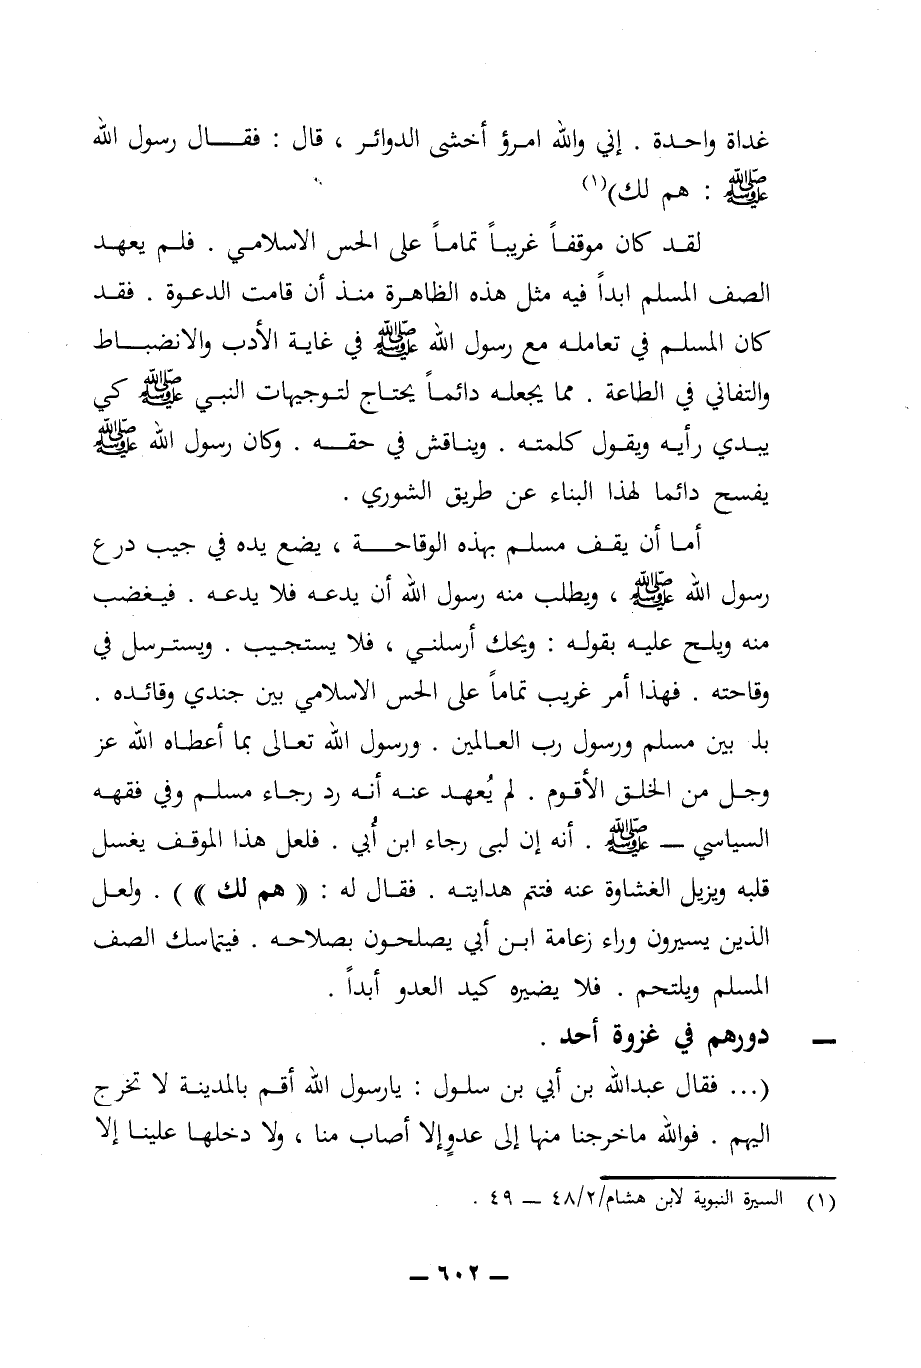 غداة واحدة . إني والله امرؤ أخشى الدوائر ، قال : فقال رسول الله
ﷺ : هم لك)(١)
لقد كان موقفاً غريباً تماماً على الحس الاسلامي . فلم يعهد
الصف المسلم ابداً فيه مثل هذه الظاهرة منذ أن قامت الدعوة . فقد
كان المسلم في تعامله مع رسول الله ﷺ في غاية الأدب والانضباط
والتفاني في الطاعة . مما يجعله دائماً يحتاج لتوجيهات النبي ﷺ كي
يبدي رأيه ويقول كلمته . ويناقش في حقه . وكان رسول الله ﷺ
يفسح دائما لهذا البناء عن طريق الشوري .
أما أن يقف مسلم بهذه الوقاحة ، يضع يده في جيب درع
رسول الله ﷺ ، ويطلب منه رسول الله أن يدعه فلا يدعه . فيغضب
منه ويلح عليه بقوله : ويحك أرسلني ، فلا يستجيب . ويسترسل في
وقاحته . فهذا أمر غريب تماماً على الحس الاسلامي بين جندي وقائده .
بل بين مسلم ورسول رب العالمين . ورسول الله تعالى بما أعطاه الله عز
وجل من الخلق الأقوم . لم يُعهد عنه أنه رد رجاء مسلم وفي فقهه
السياسي ــ ﷺ . أنه إن لبى رجاء ابن أُبي . فلعل هذا الموقف يغسل
قلبه ويزيل الغشاوة عنه فتتم هدايته . فقال له : (( هم لك )) ) . ولعل
الذين يسيرون وراء زعامة ابن أبي يصلحون بصلاحه . فيتماسك الصف
المسلم ويلتحم . فلا يضيره كيد العدو أبداً .
ــ دورهم في غزوة أحد .
(... فقال عبدالله بن أبي بن سلول : يارسول الله أقم بالمدينة لا تخرج
اليهم . فوالله ماخرجنا منها إلى عدوٍإلا أصاب منا ، ولا دخلها علينا إلا
(١) السيرة النبوية لابن هشام/٤٨/٢ ــ ٤٩ .
ــ ٦٠٢ ــ